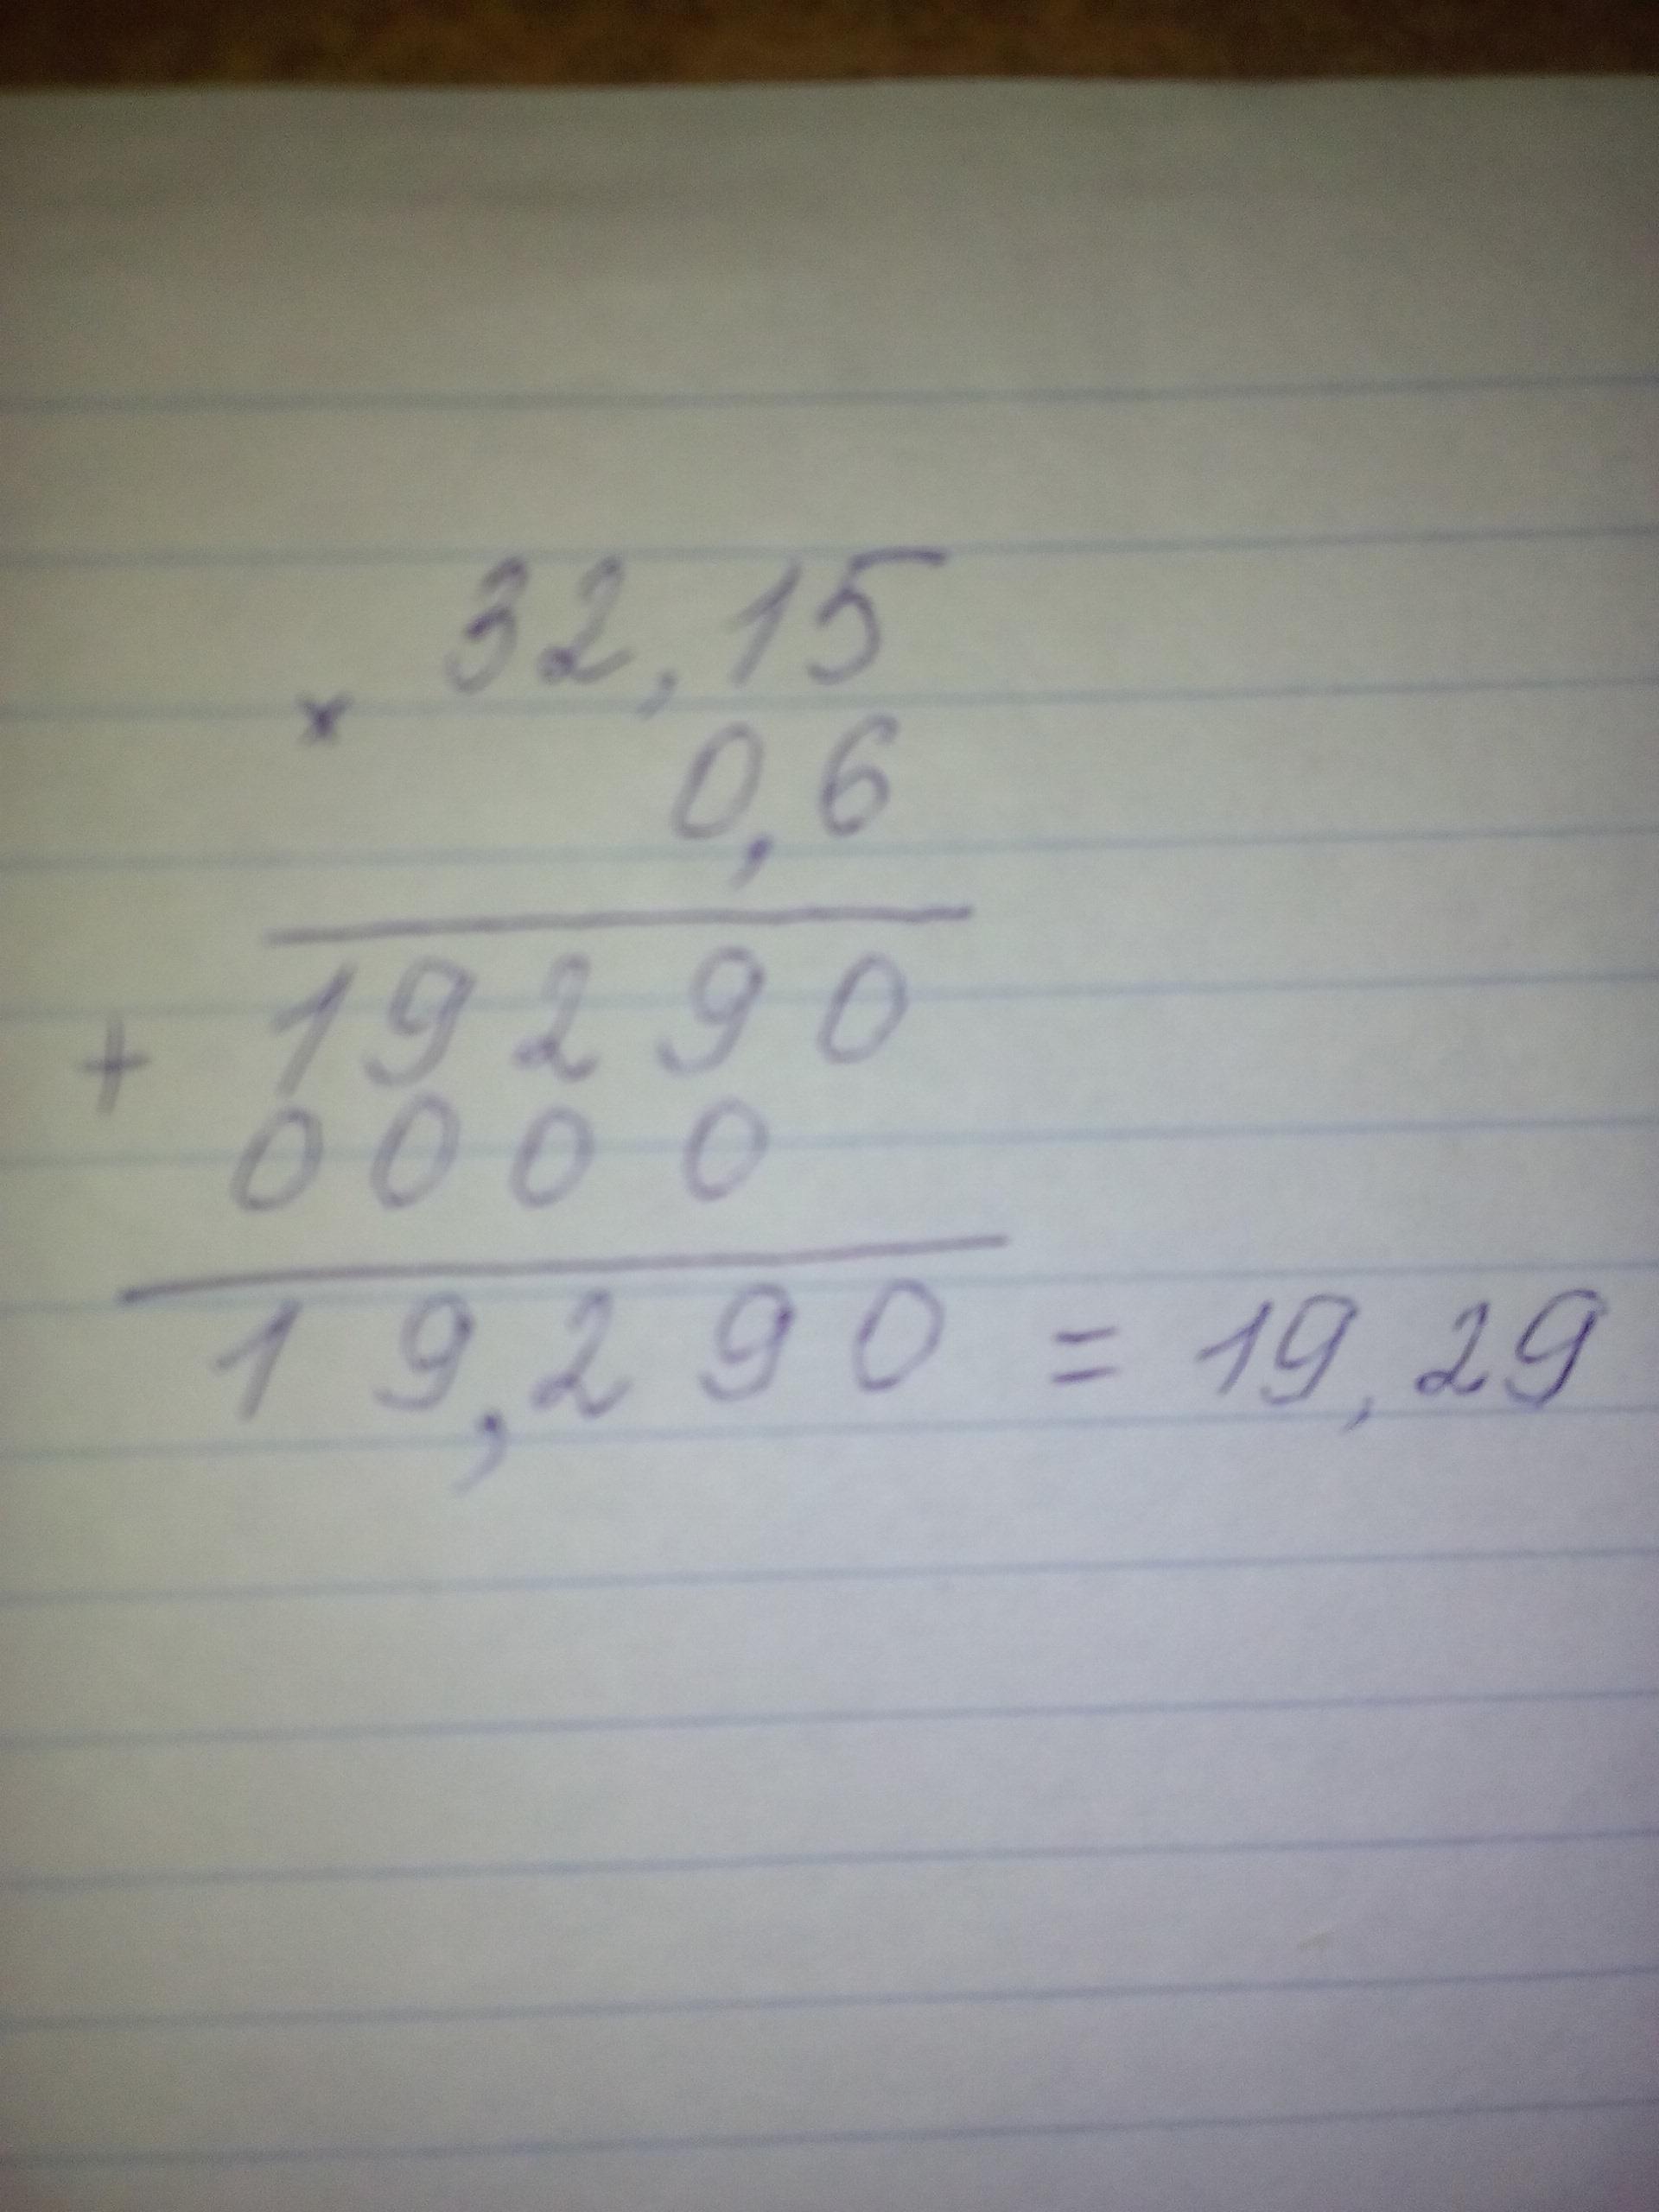 32,15
×
0,6
19290
+
0000
19,290 = 19,29